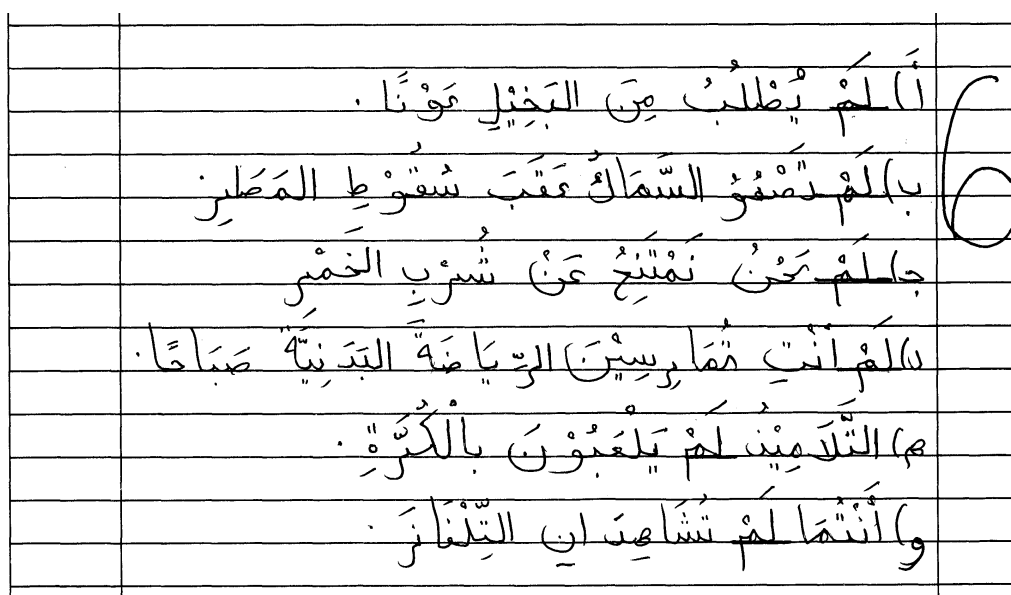 أ) لَمْ يُطْلَبُ مِنَ البَخِيْلِ عَوْنًا.
ب) لَمْ تَصْفُوُ السَّمَاءُ عَقَبَ سُقُوْطِ المَطَرِ.
ج) لَمْ نَحْنُ نَمْتَنِعُ عَنْ شُرْبِ الخَمْرِ
د) لَمْ أَنْتِ تُمَارِسِيْنَ الرِّيَاضَةَ البَدَنِيَّةَ صَبَاحًا.
ه) التَّلَامِيْذُ لَمْ يَلْعَبُوْنَ بِالْكُرَّةِ.
و) أَنْتُمَا لَمْ تُشَاهِدَانِ التِّلْفَازَ.